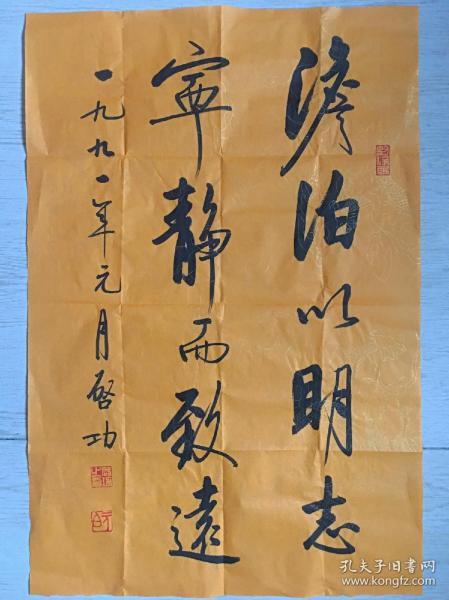 澹泊以明志
寧静而致遠
一九九一年元月啓功
孔夫子旧书网
www.kongfz.com